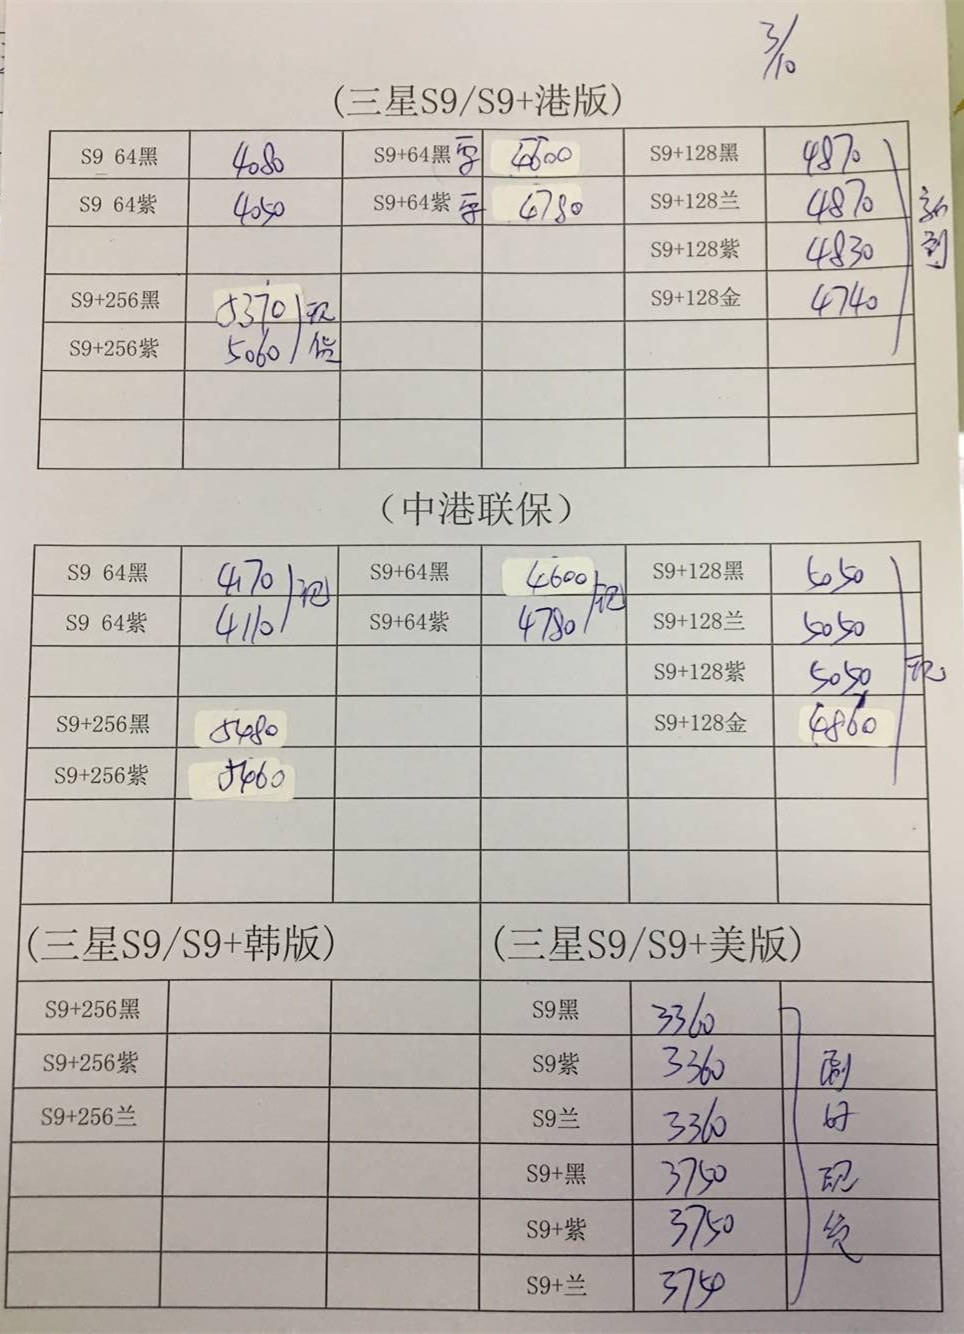 3/10
(三星S9/S9+港版)
S9 64黑 4080 S9+64黑 4600 S9+128黑 4870
S9 64紫 4050 S9+64紫 4780 S9+128兰 4870
S9+128紫 4830
S9+256黑 5370 现 S9+128金 4740
S9+256紫 5060 货
(中港联保)
S9 64黑 4170 现 S9+64黑 4600 现 S9+128黑 5050
S9 64紫 4110 S9+64紫 4780 S9+128兰 5050
S9+128紫 5050 现
S9+256黑 5480 S9+128金 4860
S9+256紫 5460
(三星S9/S9+韩版) (三星S9/S9+美版)
S9+256黑 S9黑 3360
S9+256紫 S9紫 3360 刷
S9+256兰 S9兰 3360 好
S9+黑 3750 现
S9+紫 3750
S9+兰 3750